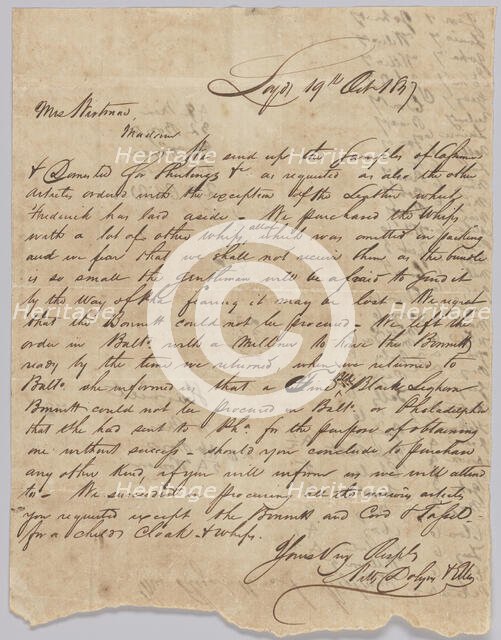 19th Oct 1837
Mrs Wirtman,
Madam
We send up the Samples of
& Domestics for Shirtings &c as requested as also the other
articles ordered with the exception of the Leather which
Frederick has laid aside - We purchased the Whips
with a lot of other Whips all of which was omitted in packing
and we fear that we shall not receive them as the bundle
is so small the gentleman will be afraid to send it
by the Way of the fearing it may be lost. We regret
that the Bonnett could not be procured - We left the
order in Balto. with a Milliner to have the Bonnett
ready by the time we returned, when we returned to
Balto. she informed us that a Black Leghorn
Bonnett could not be procured in Balto. or Philadelphia
that she had sent to Pha. for the purpose of obtaining
one without success - should you conclude to purchase
any other kind if you will inform us we will attend
to - We succeeded in procuring all the various articles
you requested except the Bonnett and Cord & Tassel -
for a childs Cloak & Whips.
Yours Very Respty
Heritage
Heritage
Heritage
Heritage
Heritage
Heritage
Images
C